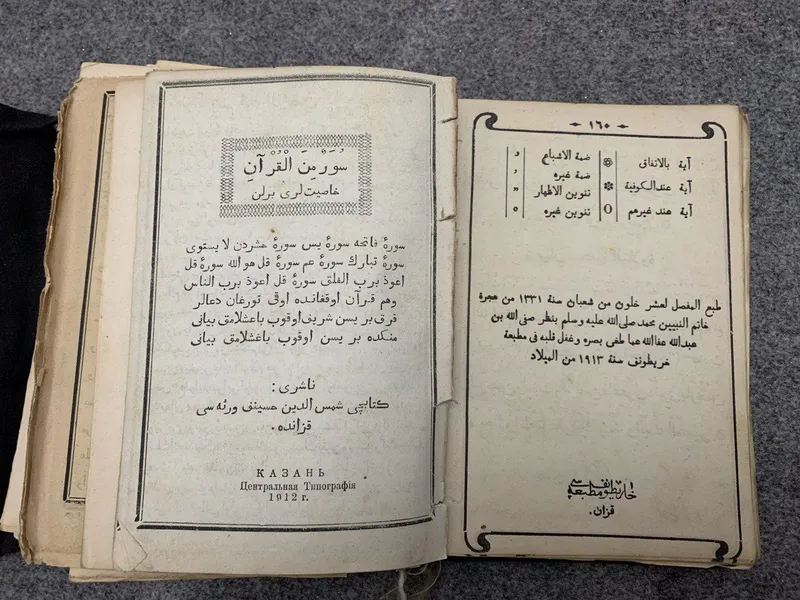 سُوَرٌ مِنَ الْقُرْآنِ
خاصیت لری برلن
سورهٔ فاتحه سورهٔ یس سورهٔ حشردن لا یستوی
سورهٔ تبارك سورهٔ عم سورهٔ قل هو الله سورهٔ قل
اعوذ برب الفلق سورهٔ قل اعوذ برب الناس
وهم قرآن اوقغانده اوقی تورغان دعالر
قرق بر یسن شریف اوقوب باغشلامق بیانی
منكده بر یسن اوقوب باغشلامق بیانی
ناشری:
كتابچی شمس الدین حسینف ورثه سی
قزانده.
КАЗАНЬ
Центральная Типографія
1912 г.
١٦٠
آية بالاتفاق ۞ ضمة الاشباع و
آية عند الكوفية ✽ ضمة غيره ُ
تنوين الاظهار
آية عند غيرهم O تنوين غيره
طبع المفصل لعشر خلون من شعبان سنة ١٣٣١ من هجرة
خاتم النبيين محمد صلى الله عليه وسلم بنظر صفى الله بن
عبدالله عفا الله عنهما طغى بصره وغفل قلبه فى مطبعة
خريطونف سنة ١٩١٣ من الميلاد
خاريطونف مطبعه سی
قزان.